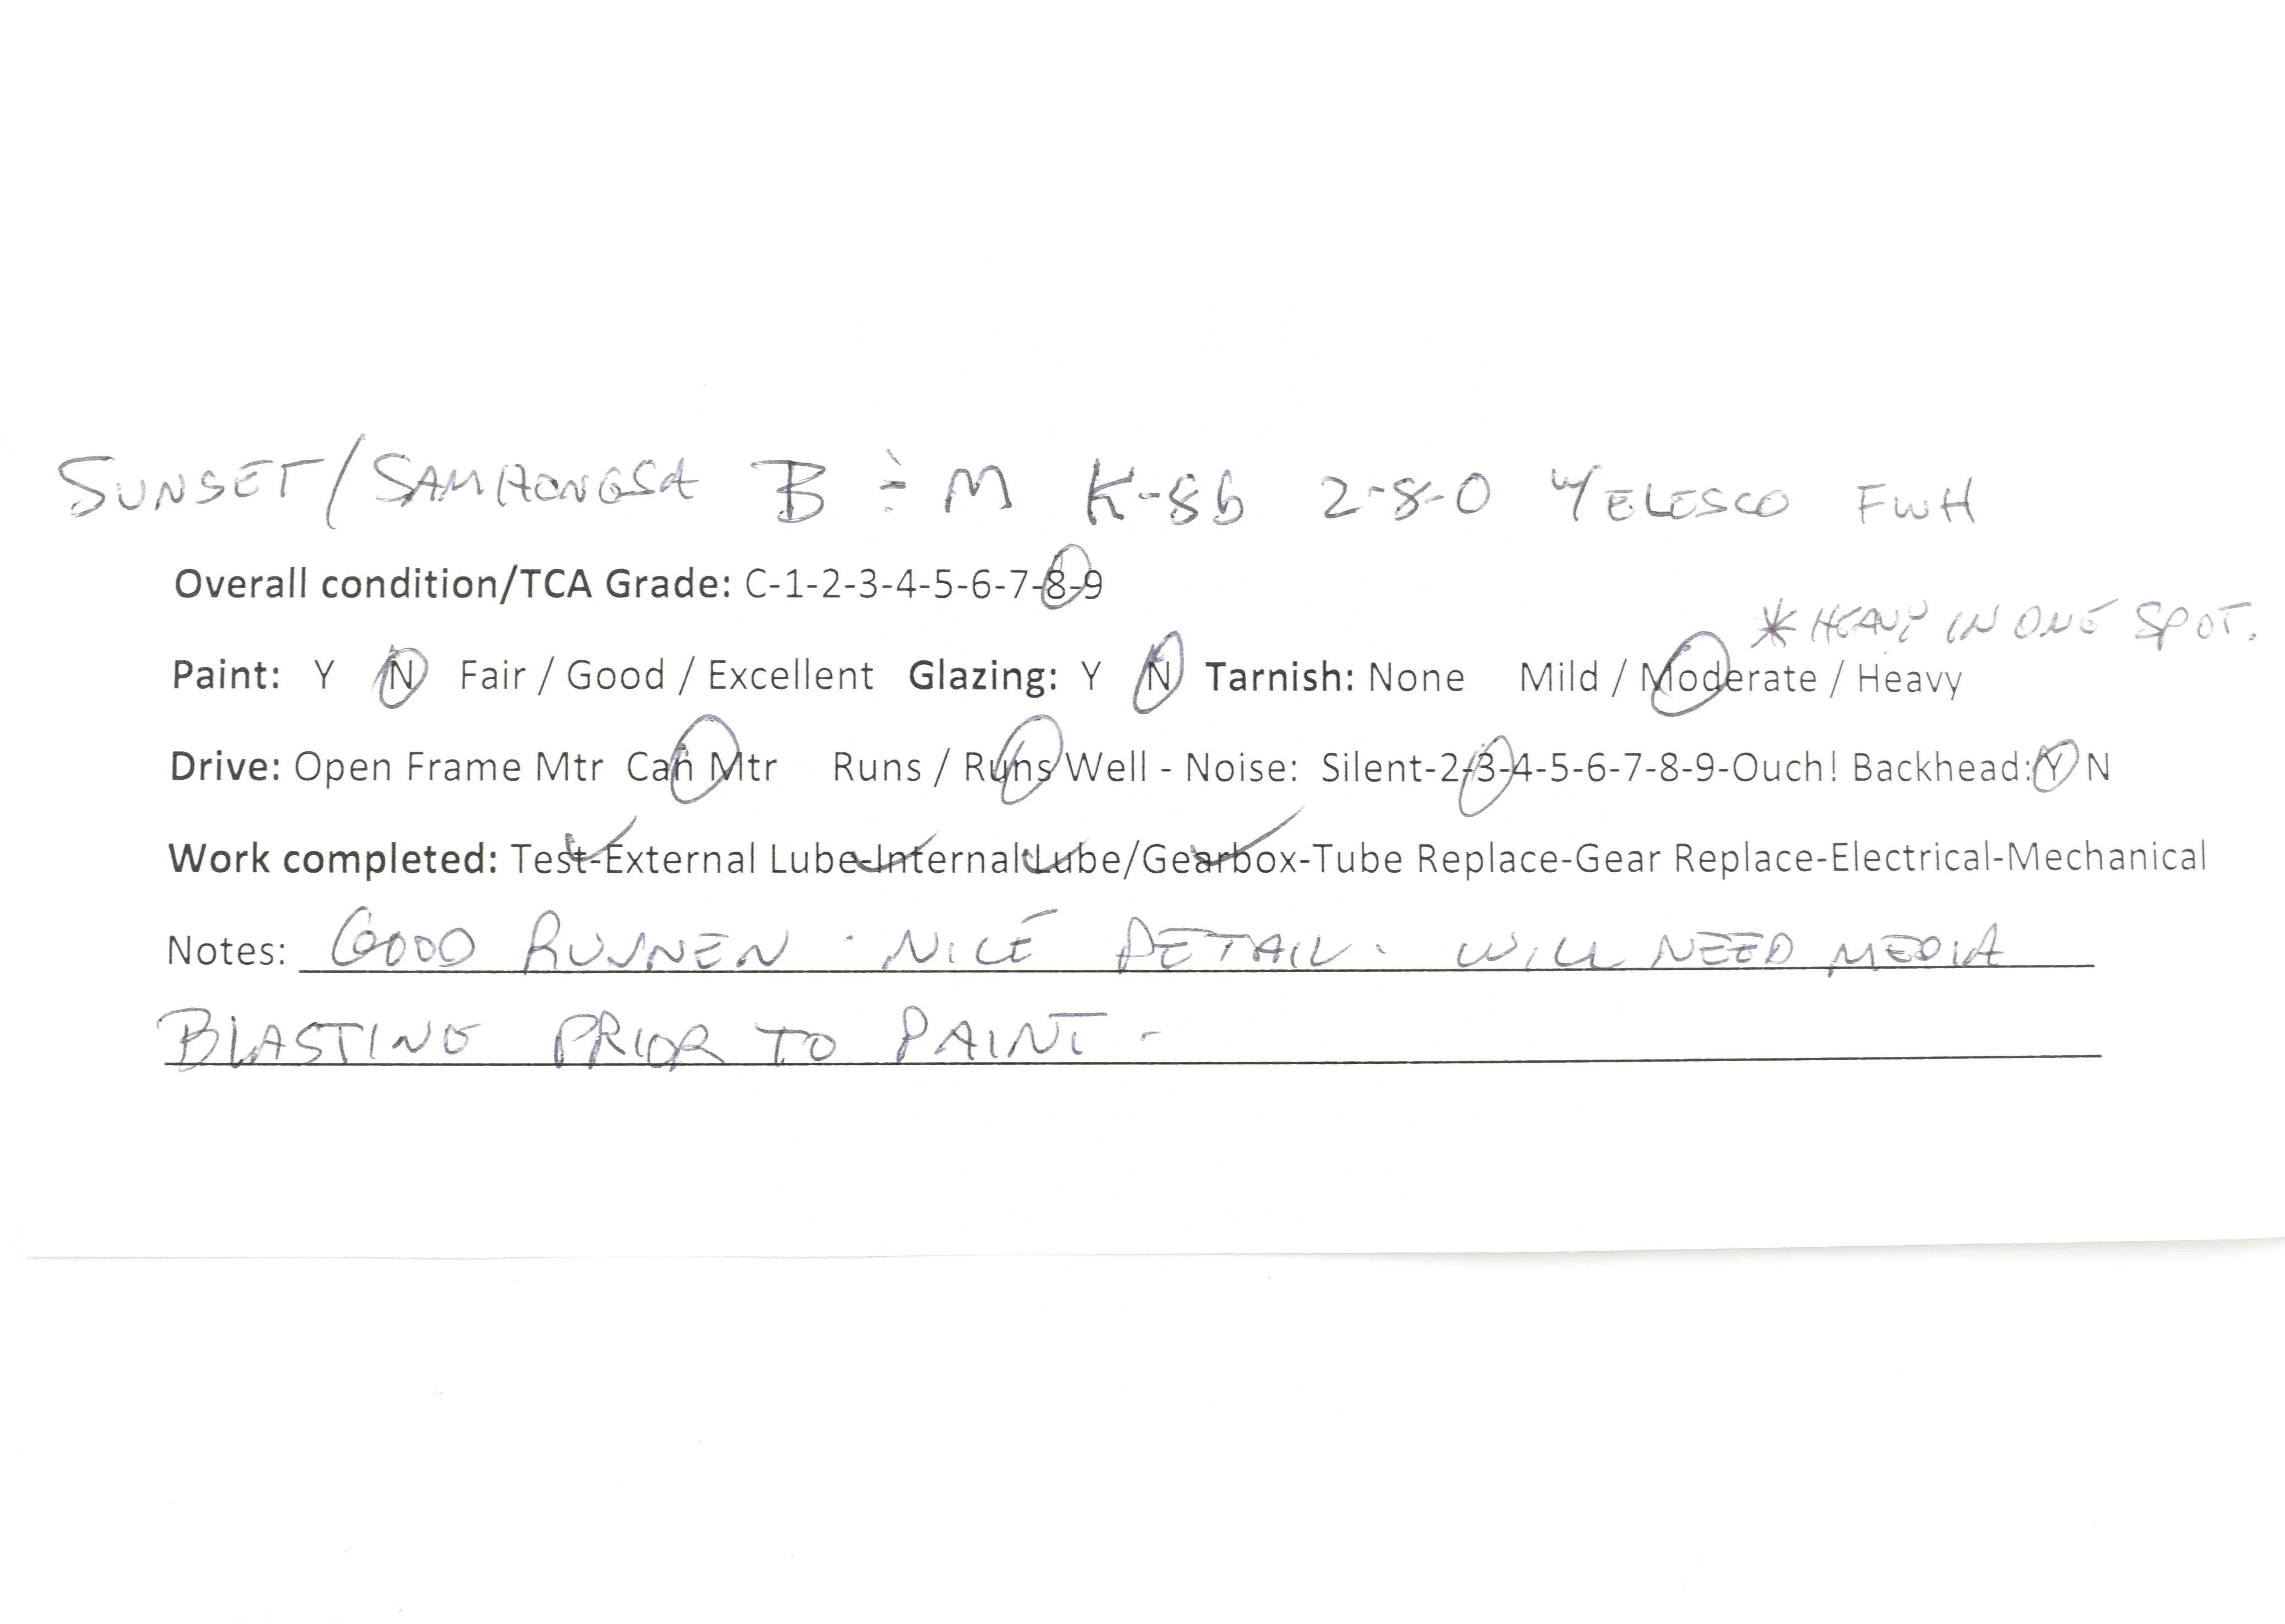 SUNSET/SAMHONGSA B÷M K-8b 2-8-0 W/ELESCO FWH
Overall condition/TCA Grade: C-1-2-3-4-5-6-7-8-9
* HEAVY IN ONE SPOT.
Paint: Y N Fair / Good / Excellent Glazing: Y N Tarnish: None Mild / Moderate / Heavy
Drive: Open Frame Mtr Can Mtr Runs / Runs Well - Noise: Silent-2-3-4-5-6-7-8-9-Ouch! Backhead: Y N
Work completed: Test-External Lube-Internal Lube/Gearbox-Tube Replace-Gear Replace-Electrical-Mechanical
Notes: GOOD RUNNER. NICE DETAIL. WILL NEED MEDIA
BLASTING PRIOR TO PAINT-